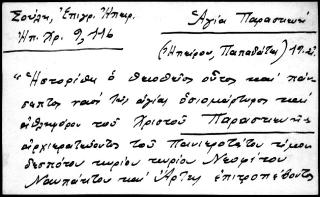 Σούλη, Ἐπιγρ. Ἠπειρ.
Ἠπ. Χρ. 9, 116
Ἁγία Παρασκευή
(Ἠπείρου, Παπαδάτες) 19.
"Ἱστορίθη ὁ θειοθεῖος οὗτος καὶ πάν-
σεπτος ναὸς τῆς ἁγίας ὁσιομάρτυρος καὶ
ἀθληφόρου τοῦ Χριστοῦ Παρασκευῆς
ἀρχιερατεύοντος τοῦ Πανιερωτάτου
δεσπότου κυρίου κυρίου Νεοφύτου
Ναυπάκτου καὶ Ἄρτης ἐπιτροπεύοντος